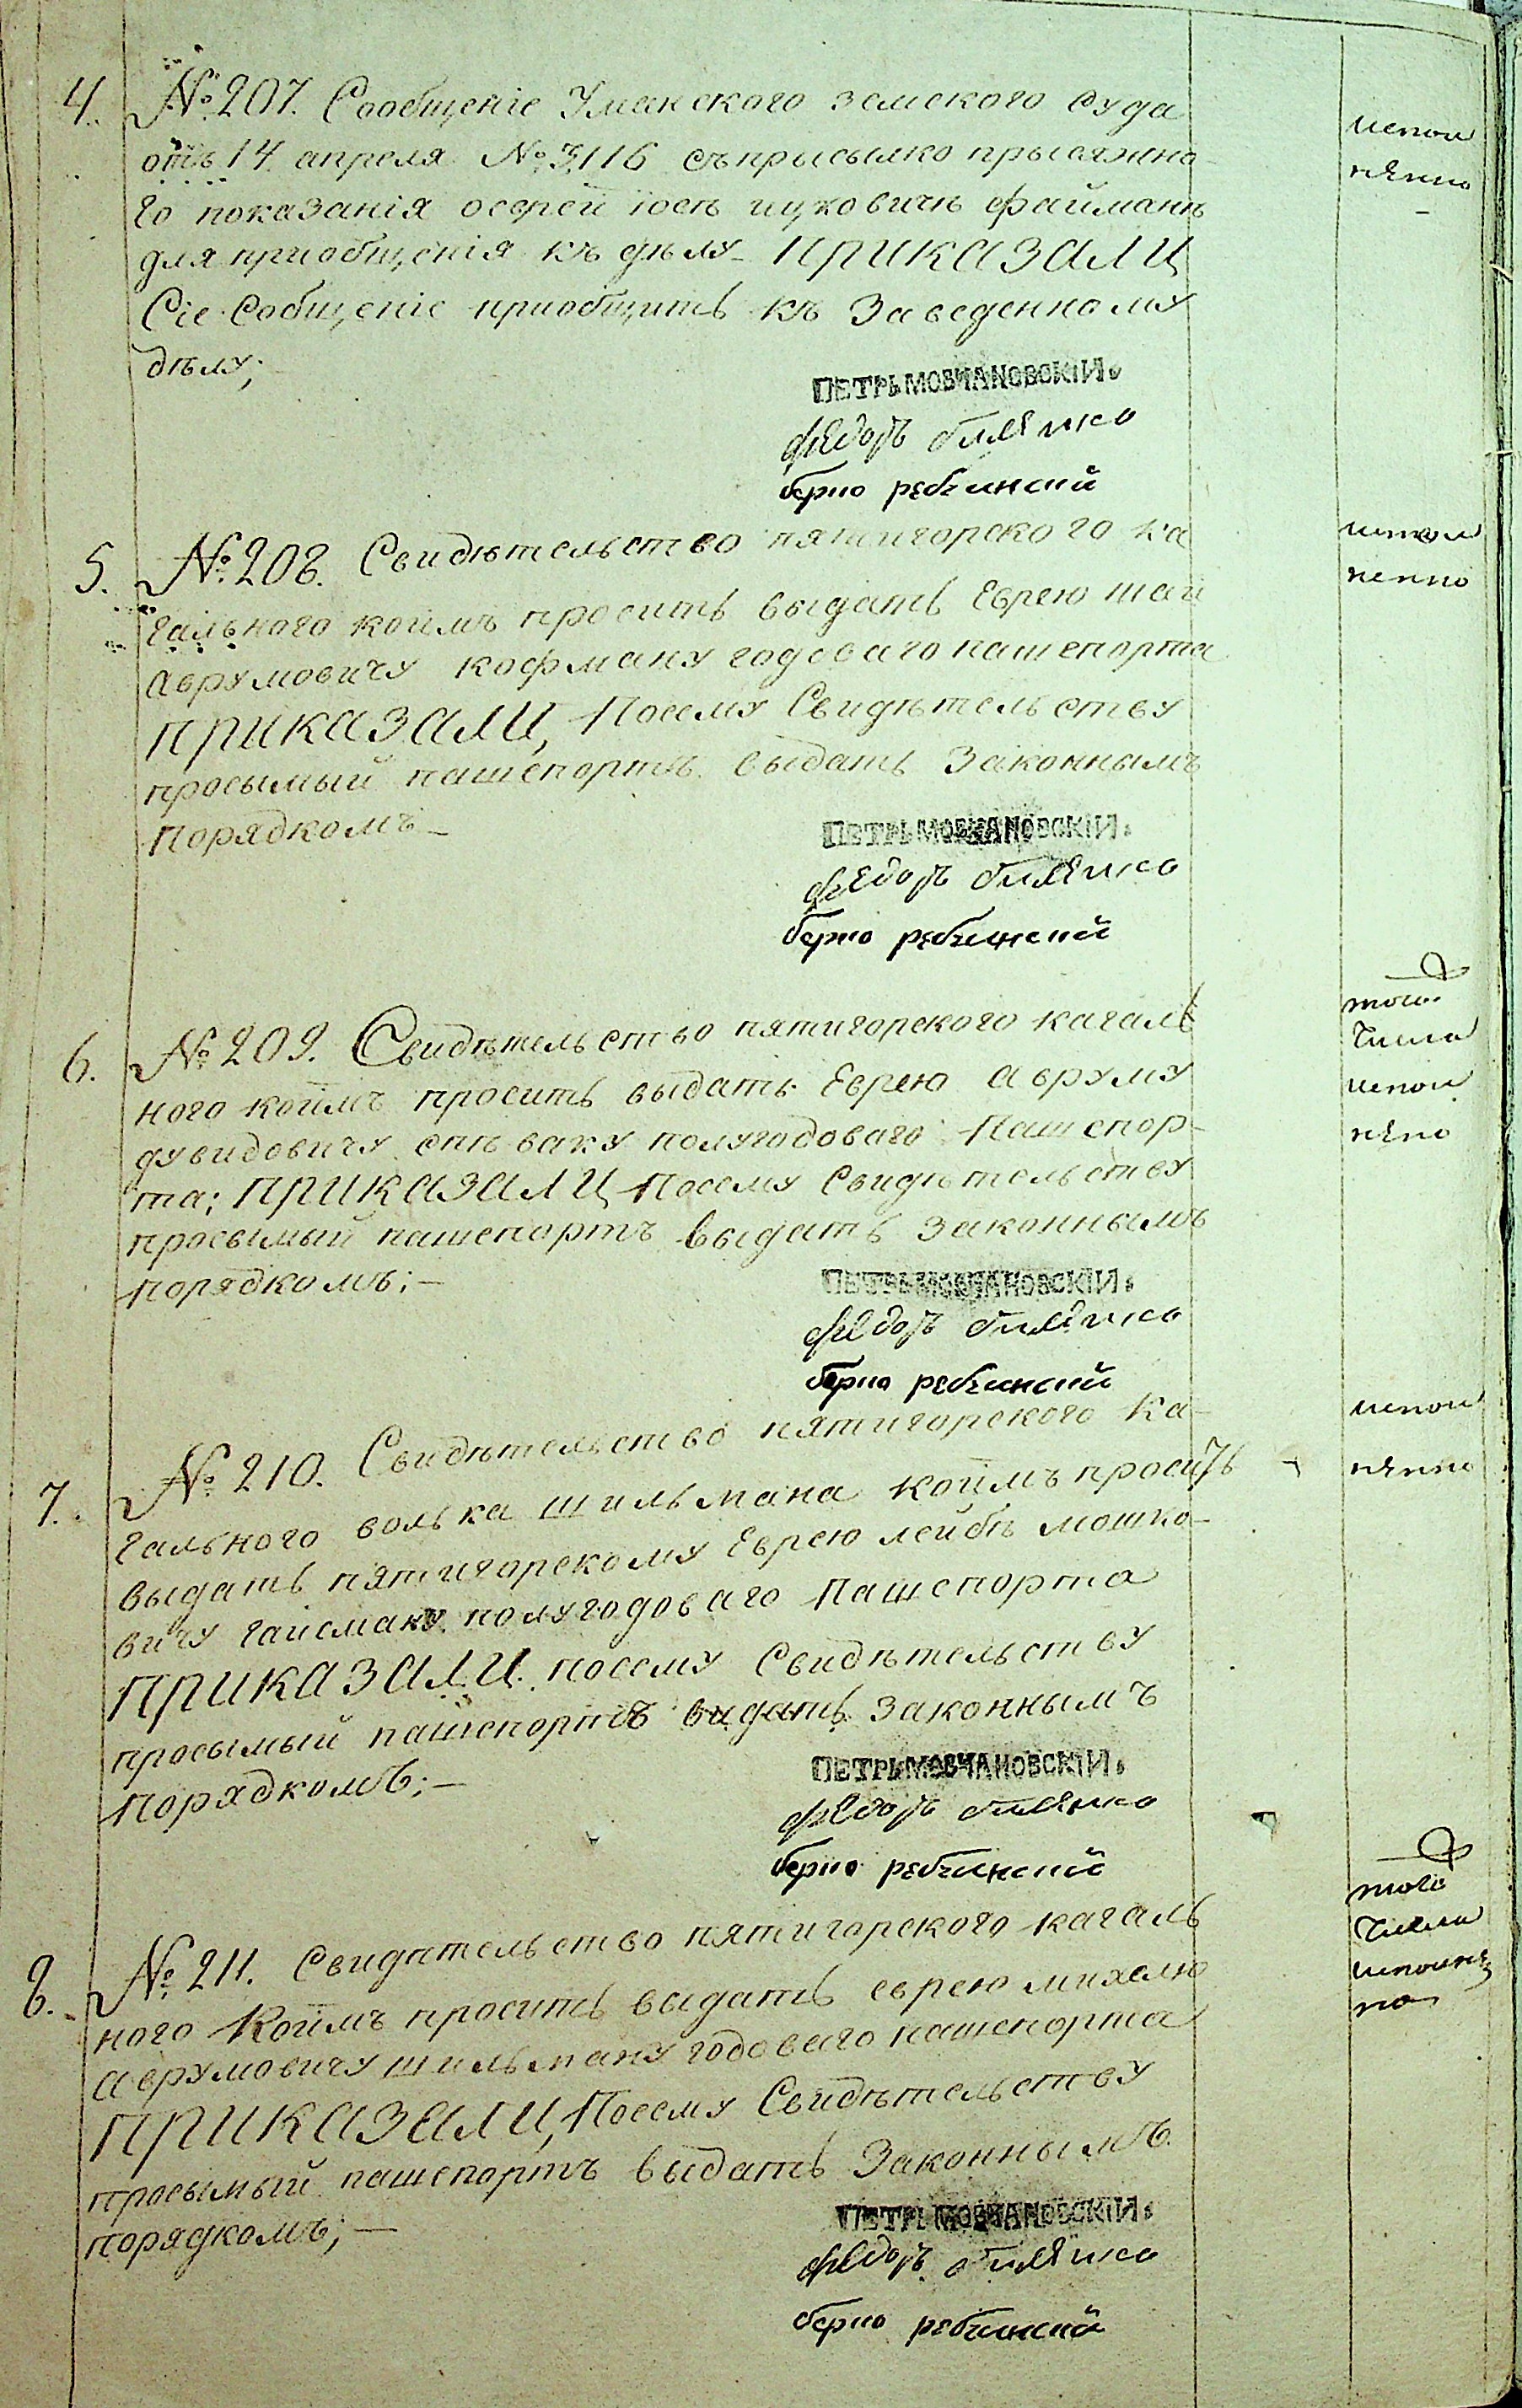 4. № 207. Сообщеніе Уманского земского суда
отъ 14 апреля № 3,116 съ присылко присяжно
го показанія о еврей Іосѣ ицковичѣ файманѣ
для приобщенія къ дѣлу_ ПРИКАЗАЛИ
Сіе Собщеніе приобщить къ Заведенному
дѣлу;
испол
няно
ПЕТРЬ МОВЧАНОВСКІЙ.
федоръ
берко
5. № 208. Свидѣтельство пятигорского ка
гального коимъ просить выдать Еврею шаи
Аврумовичу кофману годоваго пашепорта
ПРИКАЗАЛИ, Посему Свидѣтельству
просымый пашепортъ выдать Законнымъ
Порядкомъ_
испол
ненно
ПЕТРЬ МОВЧАНОВСКІЙ.
федоръ
берко
6. № 209. Свидѣтельство пятигорского кагаль
ного коимъ просить выдать Еврею Авруму
дувидовичу спѣваку полугодоваго Пашепор-
та; ПРИКАЗАЛИ Посему Свидѣтельству
просымый пашепортъ выдать Законнымъ
порядкомъ;—
того
Числа
испол
няно
ПЕТРЬ МОВЧАНОВСКІЙ.
федоръ
берко
7. № 210. Свидѣтельство пятигорского ка-
гального волька шильмана коимъ просить
выдать пятигорскому Еврею лейбѣ мошко-
вичу гайсману полугодоваго Пашепорта
ПРИКАЗАЛИ. посему Свидѣтельству
просымый пашепортъ видать Законнымъ
Порядкомъ;—
испол
няно
ПЕТРЬ МОВЧАНОВСКІЙ.
федоръ
берко
8. № 211. Свидѣтельство пятигорского кагаль
ного Коимъ просить выдать еврею михелю
Аврумовичу шильману годоваго пашепорта
ПРИКАЗАЛИ, Посему Свидѣтельству
просымый пашепортъ выдать Законнымъ.
порядкомъ;—
того
Числа
исполня
но
ПЕТРЬ МОВЧАНОВСКІЙ.
федоръ
берко